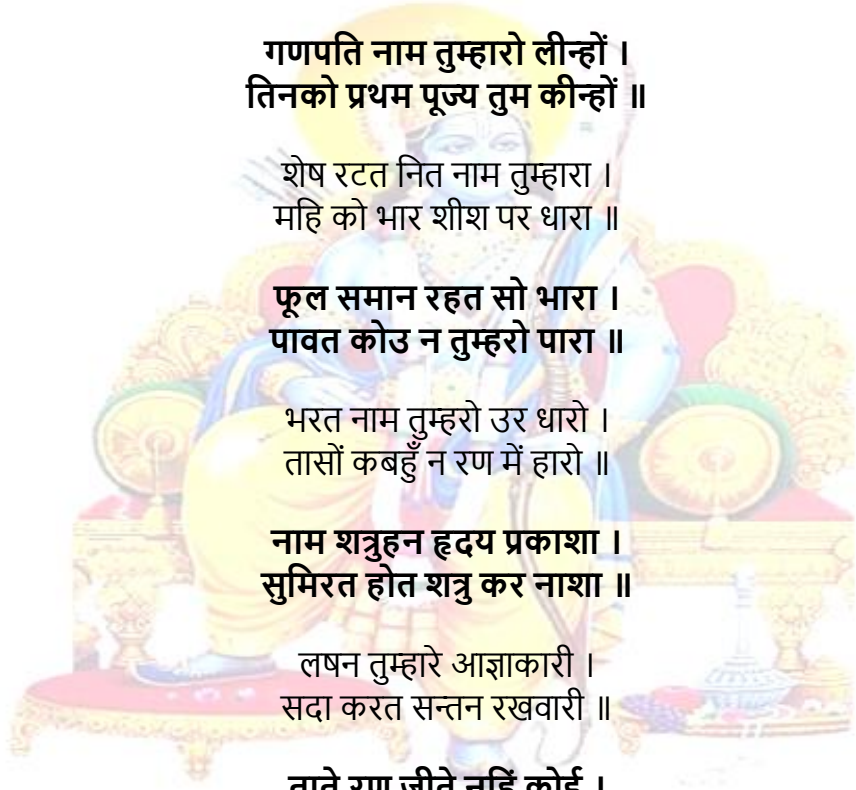 गणपति नाम तुम्हारो लीन्हों ।
तिनको प्रथम पूज्य तुम कीन्हों ॥
शेष रटत नित नाम तुम्हारा ।
महि को भार शीश पर धारा ॥
फूल समान रहत सो भारा ।
पावत कोउ न तुम्हरो पारा ॥
भरत नाम तुम्हरो उर धारो ।
तासों कबहुँ न रण में हारो ॥
नाम शत्रुहन हृदय प्रकाशा ।
सुमिरत होत शत्रु कर नाशा ॥
लषन तुम्हारे आज्ञाकारी ।
सदा करत सन्तन रखवारी ॥
ताते रण जीते नहिं कोई ।